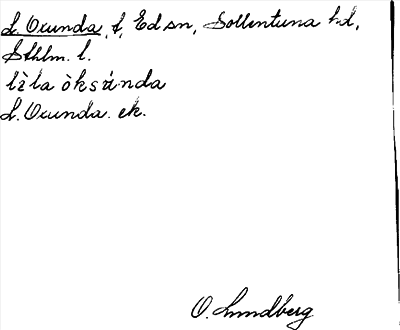 L. Oxunda, t, Ed sn, Sollentuna hd,
Sthlm. l.
lìla òksúnda
L. Oxunda. ek.
O. Lundberg